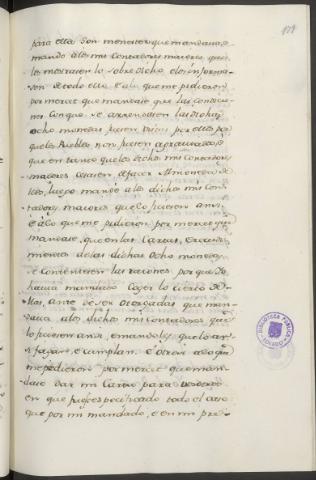 para ello son menester que mandava, e
mando a los mis contadores maiores que
les mostrasen lo sobredicho e los informa-
sen de todo ello. E a lo que me pidieron
por merced que mandase que las condicio-
nes con que se arrendasen las dichas
ocho monedas fuesen vistas por ellos por
que los Pueblos non fuesen agraviados, e
que en tanto que los dichos mis contadores
maiores cesasen de facer Almoneda de
ello, luego mando a los dichos mis con-
tadores maiores que lo ficiesen ansi
e a lo que me pidieron por merced que
mandase, que en las Cartas, e
de las dichas ocho monedas
se contuviesen las razones por que Yo
havia mandado Coger lo cierto de-
llas, ante de ser otorgadas que man-
dava a los dichos mis contadores que
lo ficiesen ansi, e mandoles que lo an-
si fagan, e cumplan. E otrosi a lo que
me pidieron por merced que man-
dase dar mi Carta para
en que fuese especificado todo el caso
que por mi mandado, e en mi pre-
171
BIBLIOTECA PUBLICA
TOLEDO